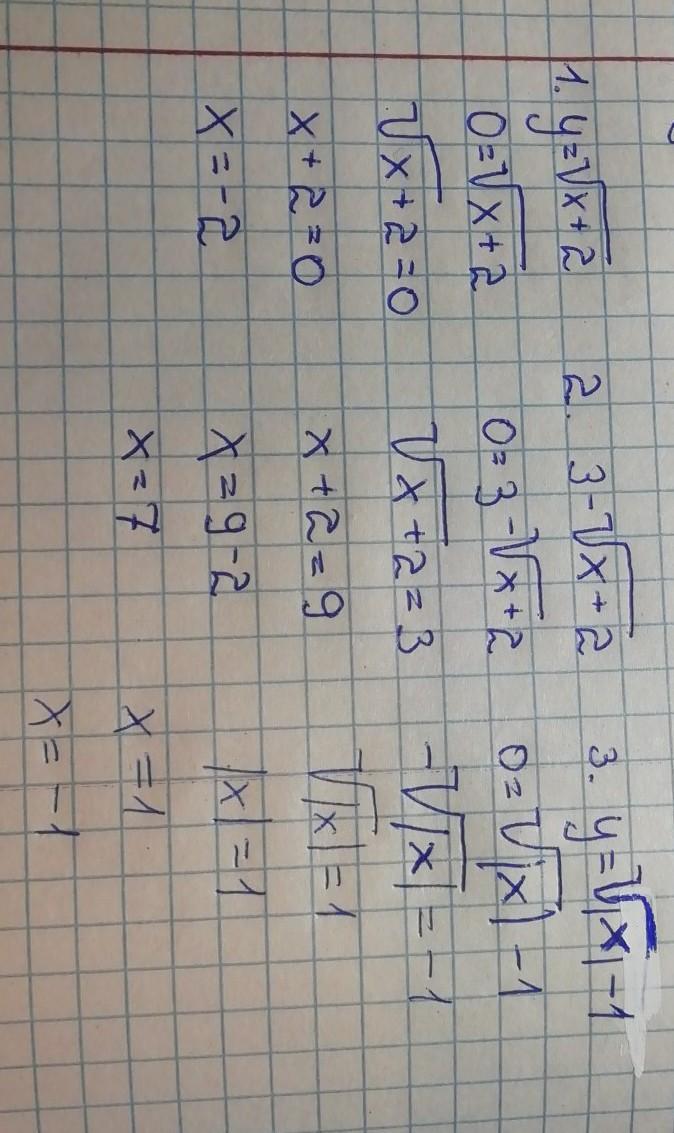 1. y=√x+2
0=√x+2
√x+2=0
x+2=0
x=-2
2. 3-√x+2
0=3-√x+2
√x+2=3
x+2=9
x=9-2
x=7
3. y=√|x|-1
0=√|x|-1
-√|x|=-1
√|x|=1
|x|=1
x=1
x=-1